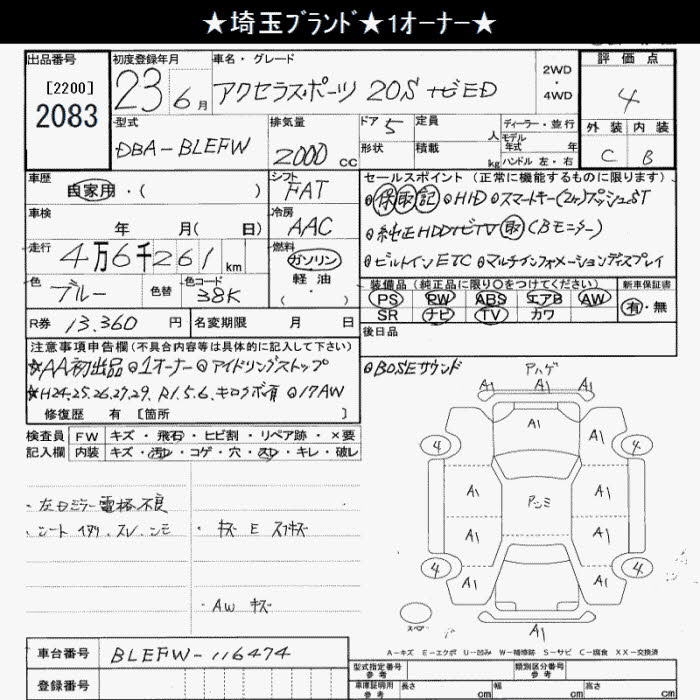 ★埼玉ﾌﾞﾗﾝﾄﾞ★1オーナー★
出品番号 初度登録年月 車名・グレード 評価点
[2200]
2083
23 6月 アクセラスポーツ 20S ナビED
2WD
・
4WD
4
外装 内装
C B
型式 排気量 ドア 5 定員 人 ディーラー・並行
DBA-BLEFW 2000 cc 形状 積載 kg モデル年式 年
ハンドル 左・右
車歴 シフト セールスポイント(正常に機能するものに限ります)
自家用・( ) FAT ⊙保取記 ⊙HID ⊙スマートキー(2ヶ)プッシュST
車検 冷房
年 月( 日) AAC ⊙純正HDDナビTV取(Bモニター)
走行 燃料
4万6千261km ガソリン ⊙ビルトインETC ⊙マルチインフォメーションディスプレイ
軽油
・( )
色 色替 色コード 装備品(純正品に限り○をつけてください) 新車保証書
ブルー 38K PS PW ABS エアB AW 有・無
SR ナビ TV カワ
R券 13.360円 名変期限 月 日 後日品
注意事項申告欄(不具合内容等は具体的に記入して下さい)
☆AA初出品 ⊙1オーナー ⊙アイドリングストップ ⊙BOSEサウンド
☆H24.25.26.27.29. R1.5.6.キロクボ有 ⊙17AW
修復歴 有 [箇所 ]
検査員記入欄 FW キズ・飛石・ヒビ割・リペア跡・×要
内装 キズ・汚れ・コゲ・穴・スレ・キレ・破レ
・左ドミラー電格不良
・シート イタリ、スレ、シミ ・キズ E スリキズ
・AW キズ
アハゲ
A1 A1
A1
4 A1 4
A1 アンミ A1
A1 A1
4 A1 A1 4
スペアー
A1
A-キズ E-エクボ U-凹み W-補修跡 S-サビ C-腐食 XX-交換済
車台番号 BLEFW-116474
登録番号
型式指定番号 参考 類別区分番号 参考
車庫証明用 参考 長さ cm 幅 cm 高さ cm